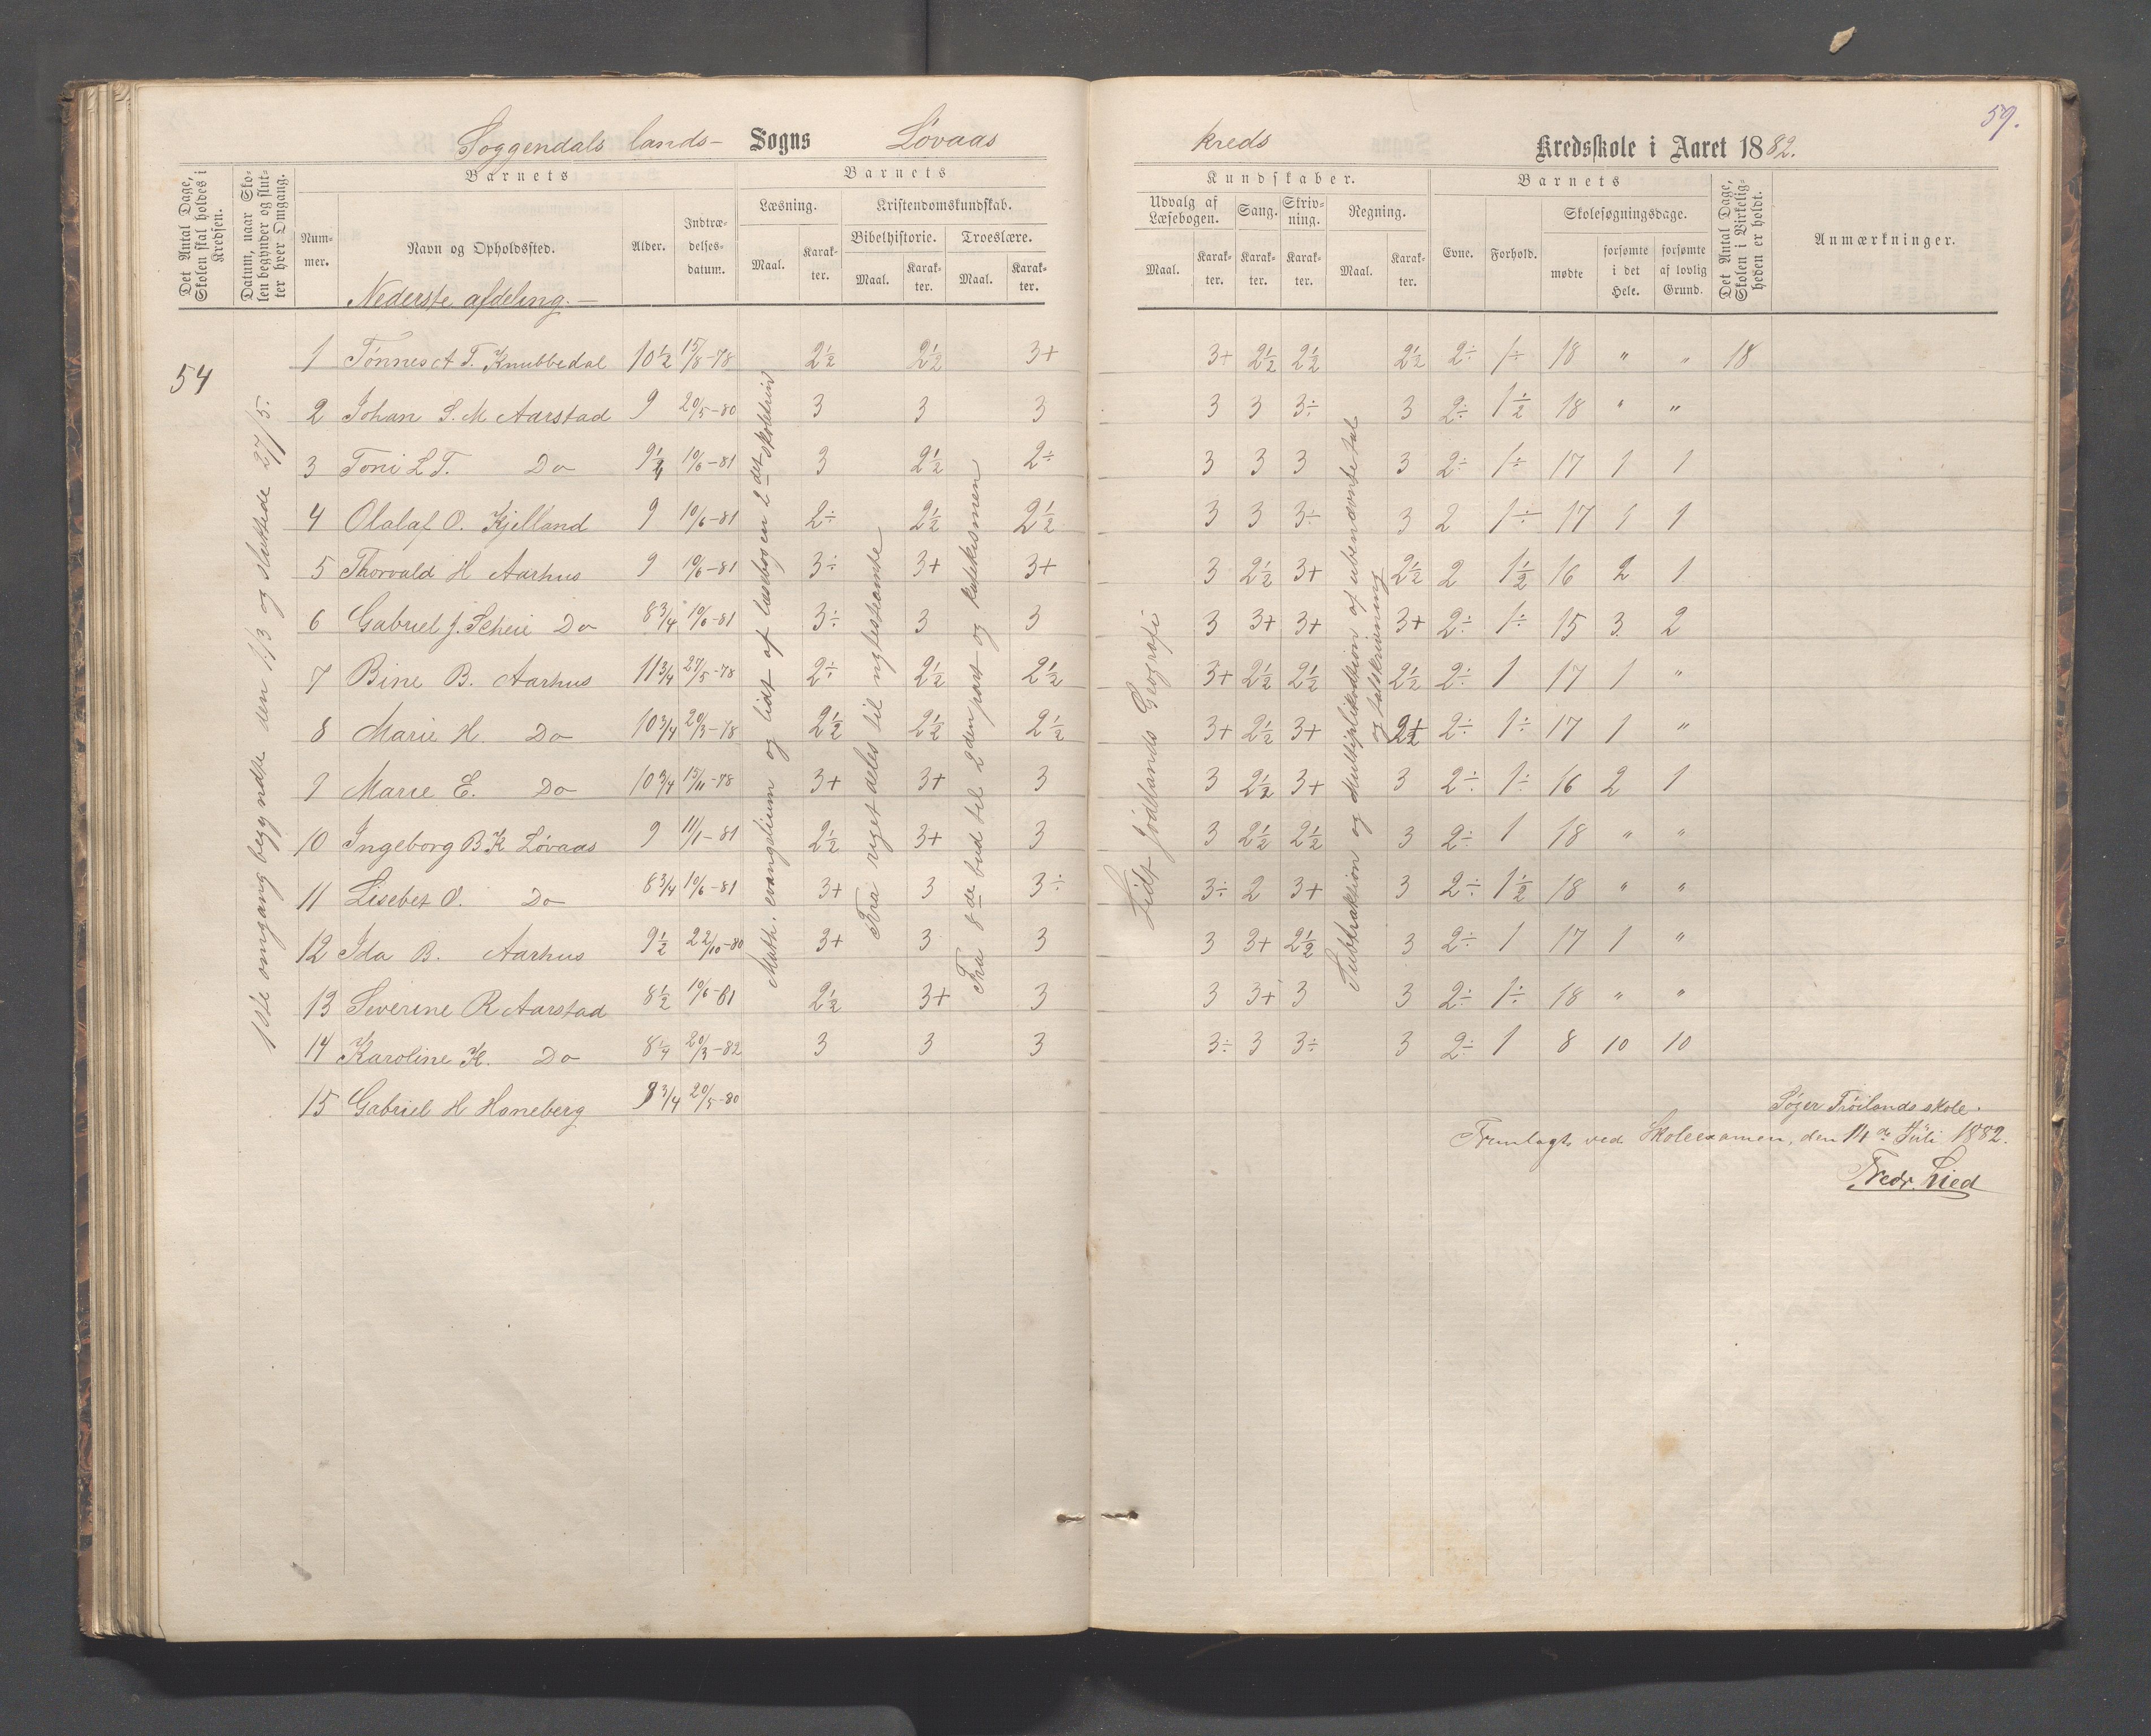 59.
Soggendals lands- Sogns Løvaas kreds Kredsskole i Aaret 1882.
Det Antal Dage, Skolen skal holdes i Kredsen.
Datum, naar Skolen begynder og slutter hver Omgang.
Barnets
Nummer.
Navn og Opholdssted.
Alder.
Indtrædelsesdatum.
Barnets
Læsning.
Maal.
Karakter.
Kristendomskundskab.
Bibelhistorie.
Maal.
Karakter.
Troeslære.
Maal.
Karakter.
Kundskaber.
Udvalg af Læsebogen.
Maal.
Karakter.
Sang.
Karakter.
Skrivning.
Karakter.
Regning.
Maal.
Karakter.
Barnets
Evne.
Forhold.
Skolesøgningsdage.
mødte
forsømte i det Hele.
forsømte af lovlig Grund.
Det Antal Dage, Skolen i Virkeligheden er holdt.
Anmærkninger.
Nederste afdeling.-
54
1ste omgang begyndte den 1/3 og sluttede 27/5.
Math. evangelium og lidt af læsebogen 2det skoletrin
Fra riget deles til nytestamte
Fra 8de bud til 2den part og katekismen
Lidt Geografi
Subtraktion og Multiplikation af ubenævnte tal
og talskrivning
1 Tønnes A T. Knubbedal 10½ 15/8-78 2½ 2½ 3+ 3+ 2½ 2½ 2½ 2÷ 1÷ 18 " " 18
2 Johan S. M Aarstad 9 20/5-80 3 3 3 3 3 3÷ 3 2÷ 1½ 18 " "
3 Toni L T. Do 9¼ 10/6-81 3 2½ 2÷ 3 3 3 3 2÷ 1÷ 17 1 1
4 Olalaf O. Kjelland 9 10/6-81 2÷ 2½ 2½ 3 3 3÷ 3 2 1÷ 17 1 1
5 Thorvald H Aarhus 9 10/6-81 3÷ 3+ 3+ 3 2½ 3+ 2½ 2 1½ 16 2 1
6 Gabriel J. Scheie Do 8¾ 10/6-81 3÷ 3 3 3 3+ 3+ 3+ 2÷ 1÷ 15 3 2
7 Bine B. Aarhus 11¾ 27/5-78 2÷ 2½ 2½ 3+ 2½ 2½ 2½ 2÷ 1 17 1 "
8 Marie H. Do 10¾ 20/3-78 2½ 2½ 2½ 3+ 2½ 3+ 2½ 2÷ 1÷ 17 1 "
9 Marie E. Do 10¾ 15/11-78 3+ 3+ 3 3 2½ 3+ 3 2÷ 1÷ 16 2 1
10 Ingeborg B K Løvaas 9 11/1-81 2½ 3+ 3 3 2½ 2½ 3 2÷ 1 18 " "
11 Lisebet O. Do 8¾ 10/6-81 3+ 3 3÷ 3÷ 2 3+ 3 2÷ 1½ 18 " "
12 Ida B. Aarhus 9½ 22/10-80 3+ 3 3 3 3+ 2½ 3 2÷ 1 17 1 "
13 Severine R Aarstad 8½ 10/6-81 2½ 3+ 3 3 3+ 3 3 2÷ 1÷ 18 " "
14 Karoline K. Do 8¼ 20/3-82 3 3 3 3÷ 3 3÷ 3 2÷ 1 8 10 10
15 Gabriel H Haneberg 9¾ 20/5-80
Søger Frøilands skole.
Fremlagt ved Skoleexamen, den 14de Juli 1882.
Fredr. Lied